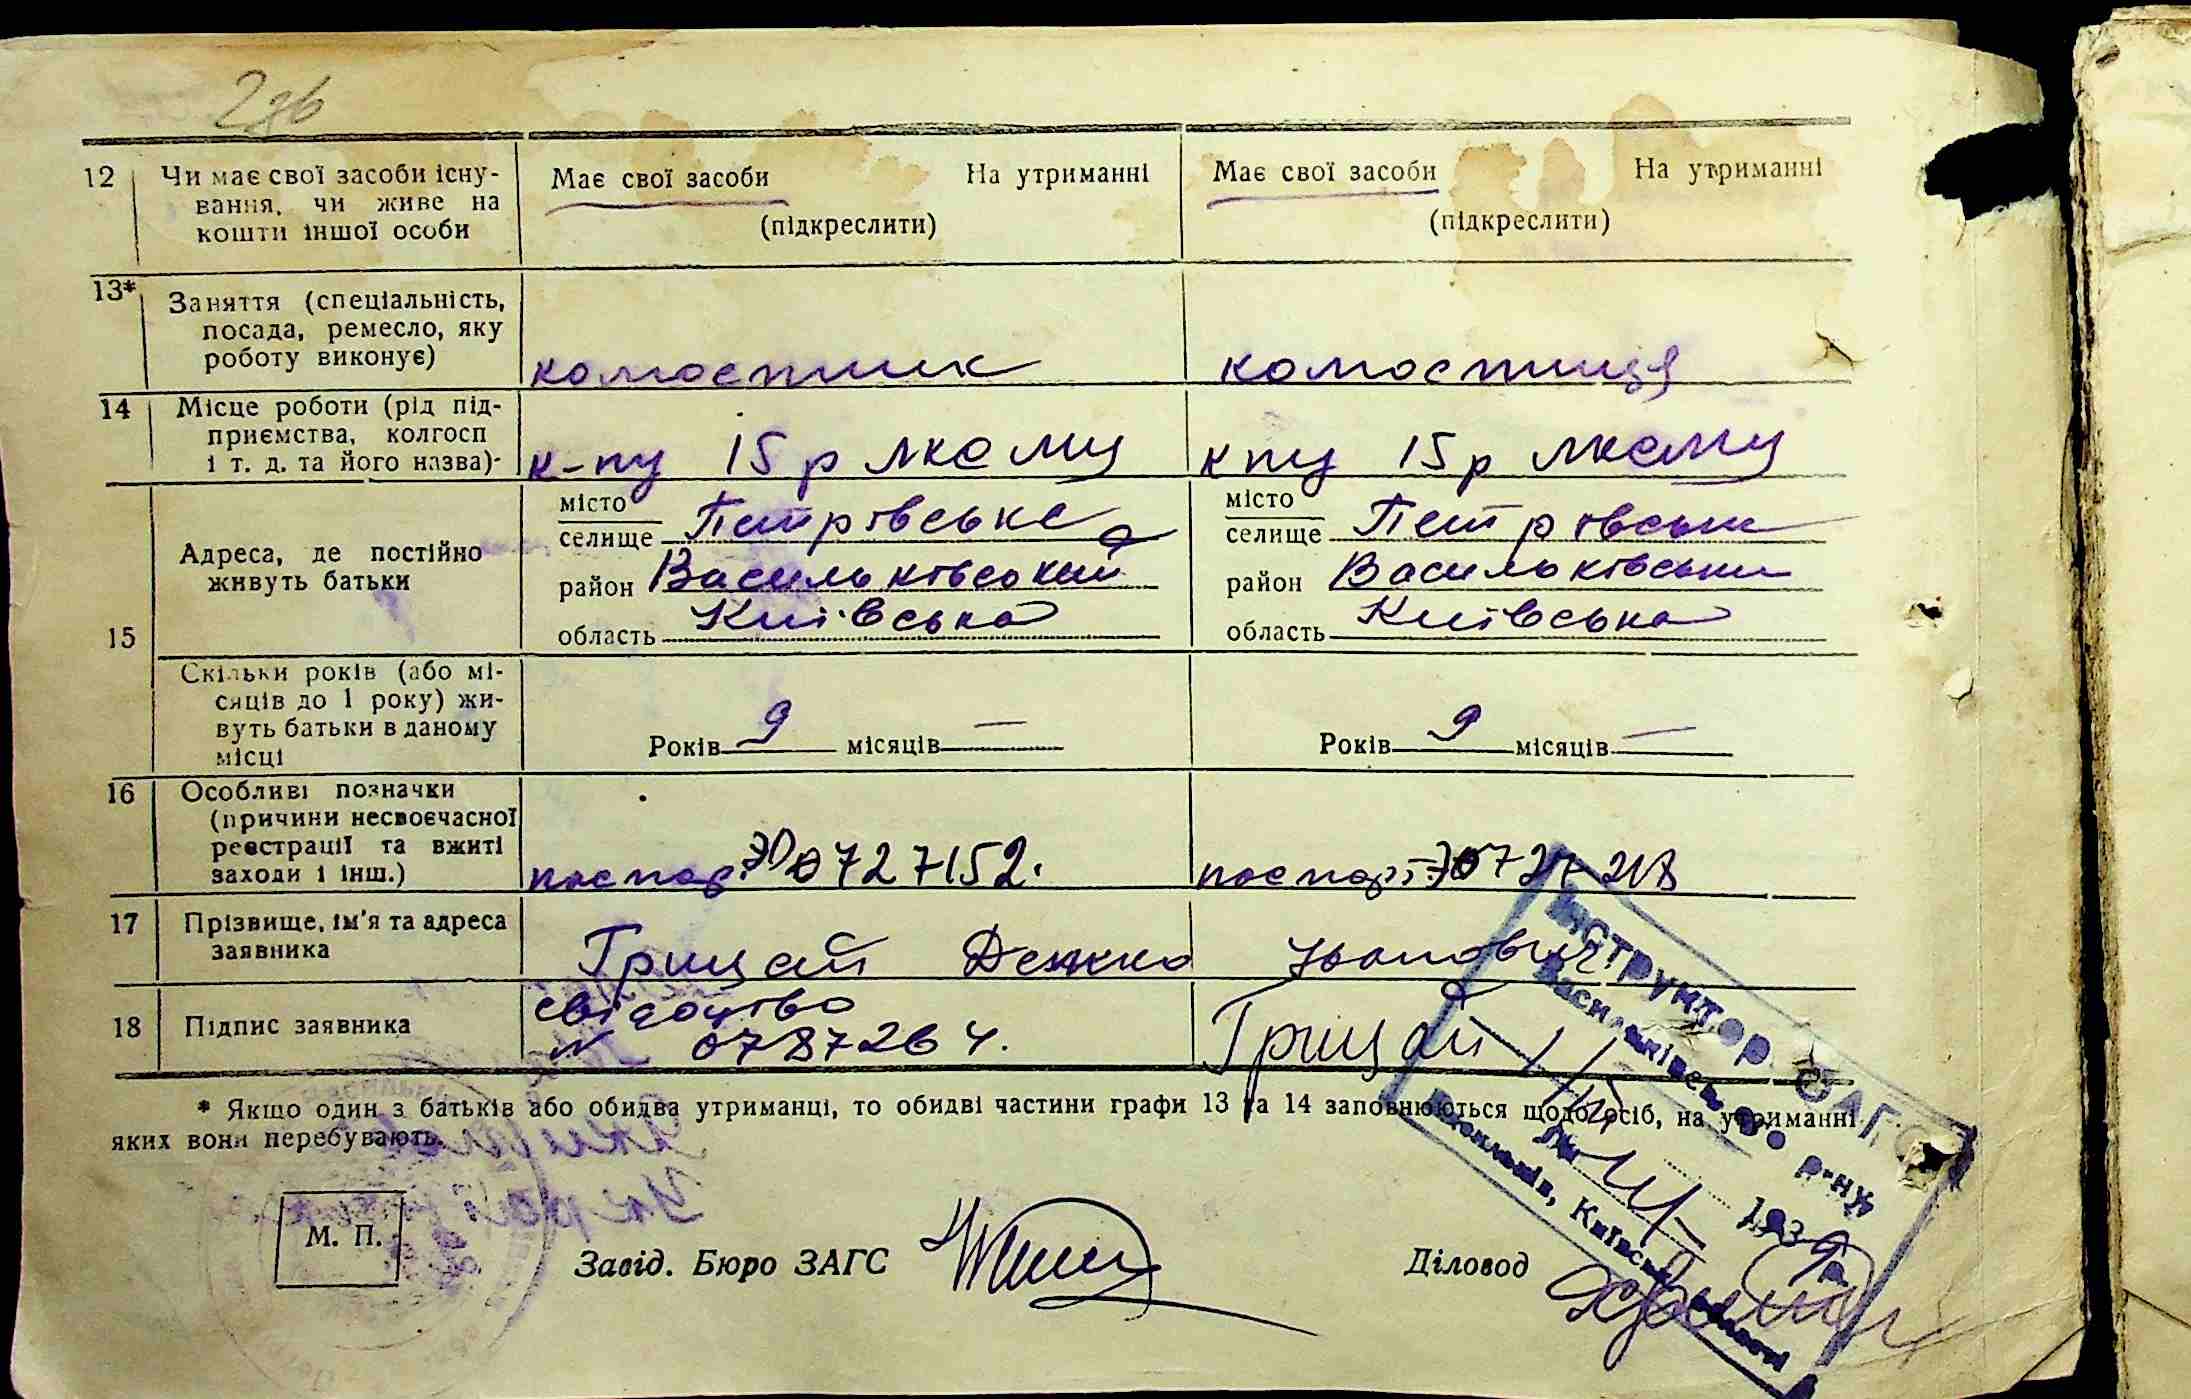 2зв
12 Чи має свої засоби існу-
вання, чи живе на
кошти іншої особи
Має свої засоби На утриманні
(підкреслити)
Має свої засоби На утриманні
(підкреслити)
13* Заняття (спеціальність,
посада, ремесло, яку
роботу виконує)
колгоспник
колгоспниця
14 Місце роботи (рід під-
приємства, колгосп
і т. д. та його назва)
к-пу 15 р ЛКСМУ
кпу 15 р ЛКСМУ
15 Адреса, де постійно
живуть батьки
місто
селище Петрівське
район Васильківський
область Київська
місто
селище Петрівське
район Васильківський
область Київська
Скільки років (або мі-
сяців до 1 року) жи-
вуть батьки в даному
місці
Років 9 місяців —
Років 9 місяців —
16 Особливі позначки
(причини несвоєчасної
реєстрації та вжиті
заходи і інш.)
паспор. 727152.
паспорт
17 Прізвище, ім'я та адреса
заявника
Грицай Іванович
18 Підпис заявника
свідоцтво
№ 0787264.
Грицай
* Якщо один з батьків або обидва утриманці, то обидві частини графи 13 та 14 заповнюються щодо осіб, на утриманні
яких вони перебувають.
М. П.
Завід. Бюро ЗАГС
Діловод
Інструктор ЗАГС
Васильківського р-ну
1939 р.
м. Васильків, Київської області